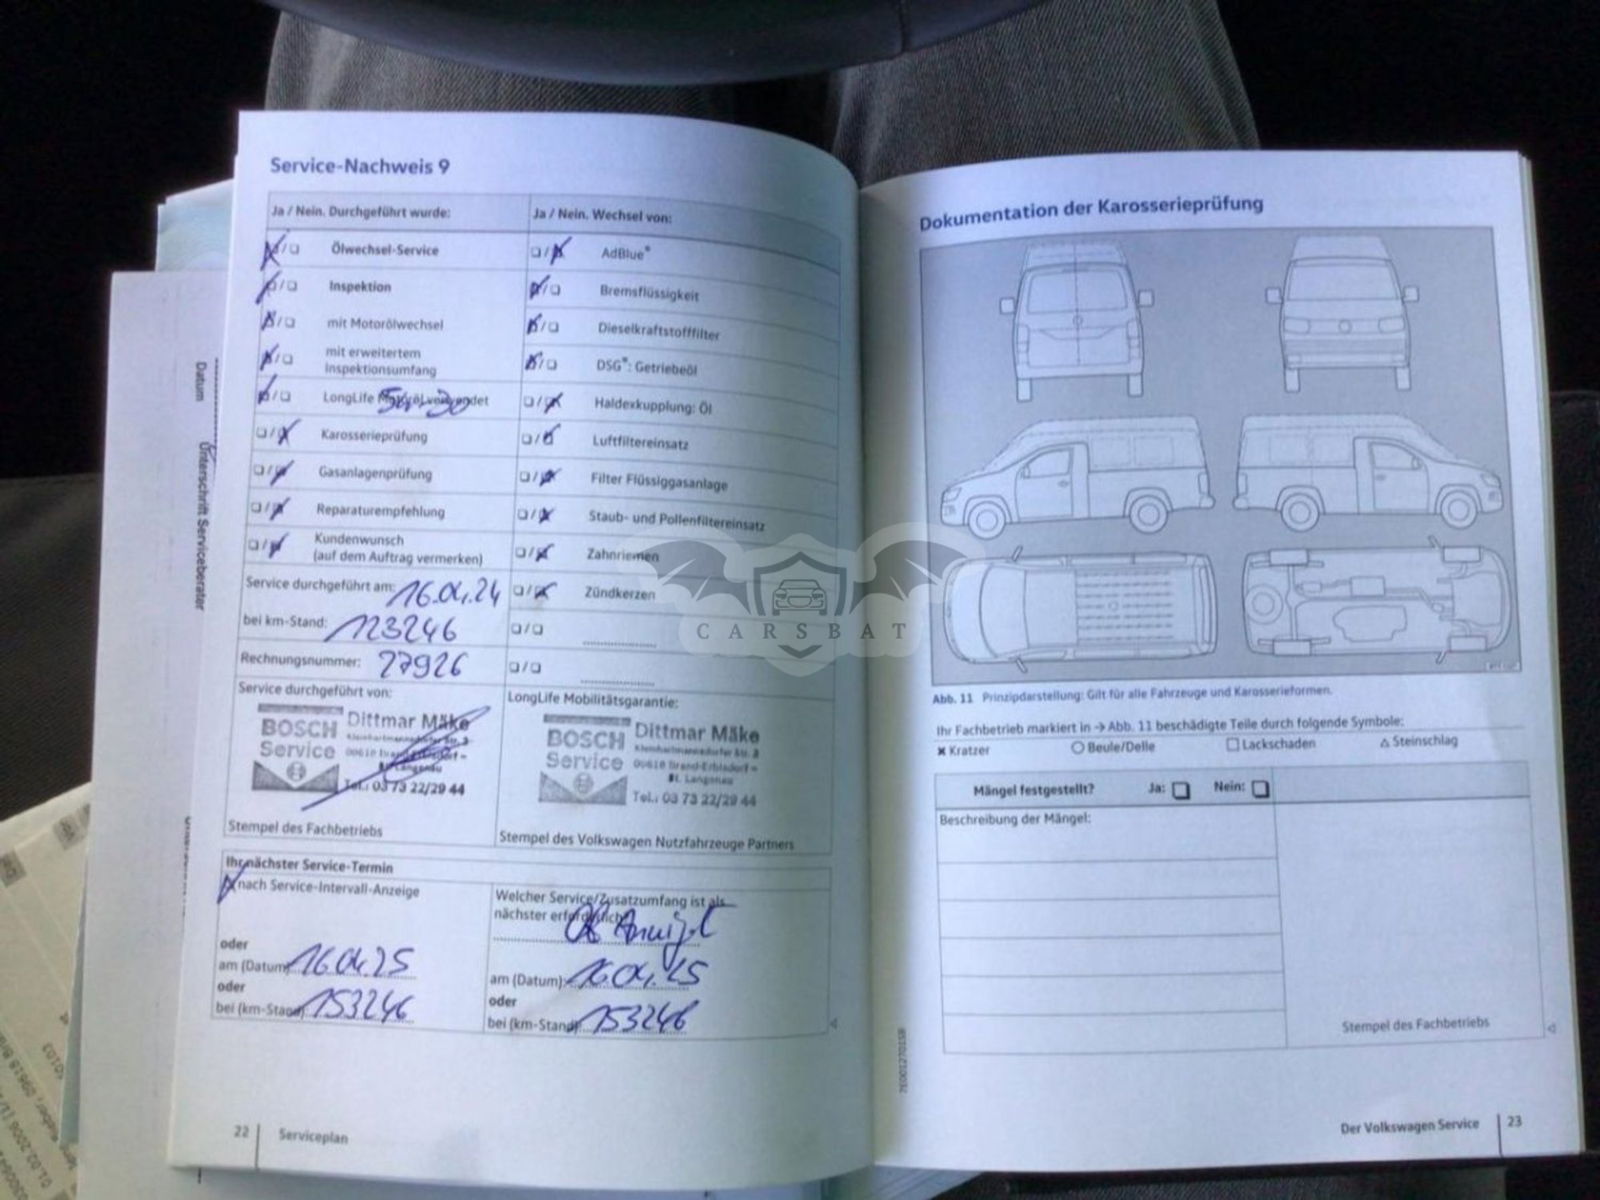 Service-Nachweis 9
Ja / Nein. Durchgeführt wurde:
Ja / Nein. Wechsel von:
Ölwechsel-Service
AdBlue®
Inspektion
Bremsflüssigkeit
mit Motorölwechsel
Dieselkraftstofffilter
mit erweitertem
Inspektionsumfang
DSG®: Getriebeöl
LongLife Motoröl verwendet
5W-30
Haldexkupplung: Öl
Karosserieprüfung
Luftfiltereinsatz
Gasanlagenprüfung
Filter Flüssiggasanlage
Reparaturempfehlung
Staub- und Pollenfiltereinsatz
Kundenwunsch
(auf dem Auftrag vermerken)
Zahnriemen
Service durchgeführt am: 16.04.24
Zündkerzen
bei km-Stand: 123246
Rechnungsnummer: 27926
Service durchgeführt von:
LongLife Mobilitätsgarantie:
BOSCH
Service
Dittmar Mäke
Tel.: 03 73 22/29 44
BOSCH
Service
Dittmar Mäke
Kleinhartmannsdorfer Str. 3
09618 Brand-Erbisdorf-
St. Langenau
Tel.: 03 73 22/29 44
Stempel des Fachbetriebs
Stempel des Volkswagen Nutzfahrzeuge Partners
Ihr nächster Service-Termin
nach Service-Intervall-Anzeige
Welcher Service/Zusatzumfang ist als
nächster erforderlich?
oder
am (Datum) 16.04.25
am (Datum): 16.04.25
oder
oder
bei (km-Stand) 153246
bei (km-Stand) 153246
22
Serviceplan
Datum
Unterschrift Serviceberater
Dokumentation der Karosserieprüfung
Abb. 11 Prinzipdarstellung: Gilt für alle Fahrzeuge und Karosserieformen.
Ihr Fachbetrieb markiert in → Abb. 11 beschädigte Teile durch folgende Symbole:
✖ Kratzer
○ Beule/Delle
□ Lackschaden
△ Steinschlag
Mängel festgestellt?
Ja:
Nein:
Beschreibung der Mängel:
Stempel des Fachbetriebs
7E0012701SB
Der Volkswagen Service
23
CARSBAT